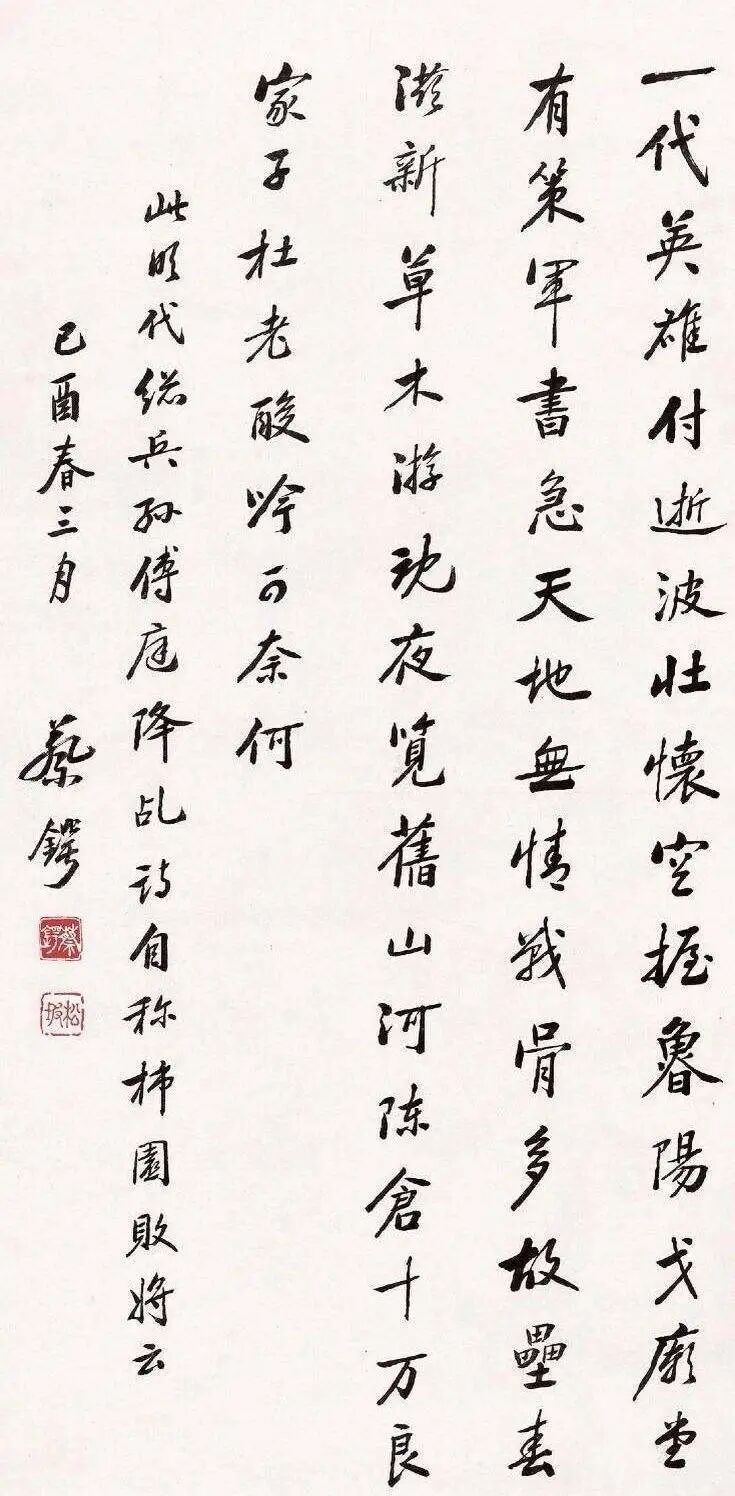 一代英雄付逝波壯懷空握魯陽戈廟堂
有策軍書急天地無情戰骨多故壘春
滋新草木游魂夜覽舊山河陈倉十万良
家子杜老酸吟可奈何
此明代總兵孙傅庭降乩诗自称柿園敗將云
己酉春三月
蔡鍔
蔡鍔
松坡